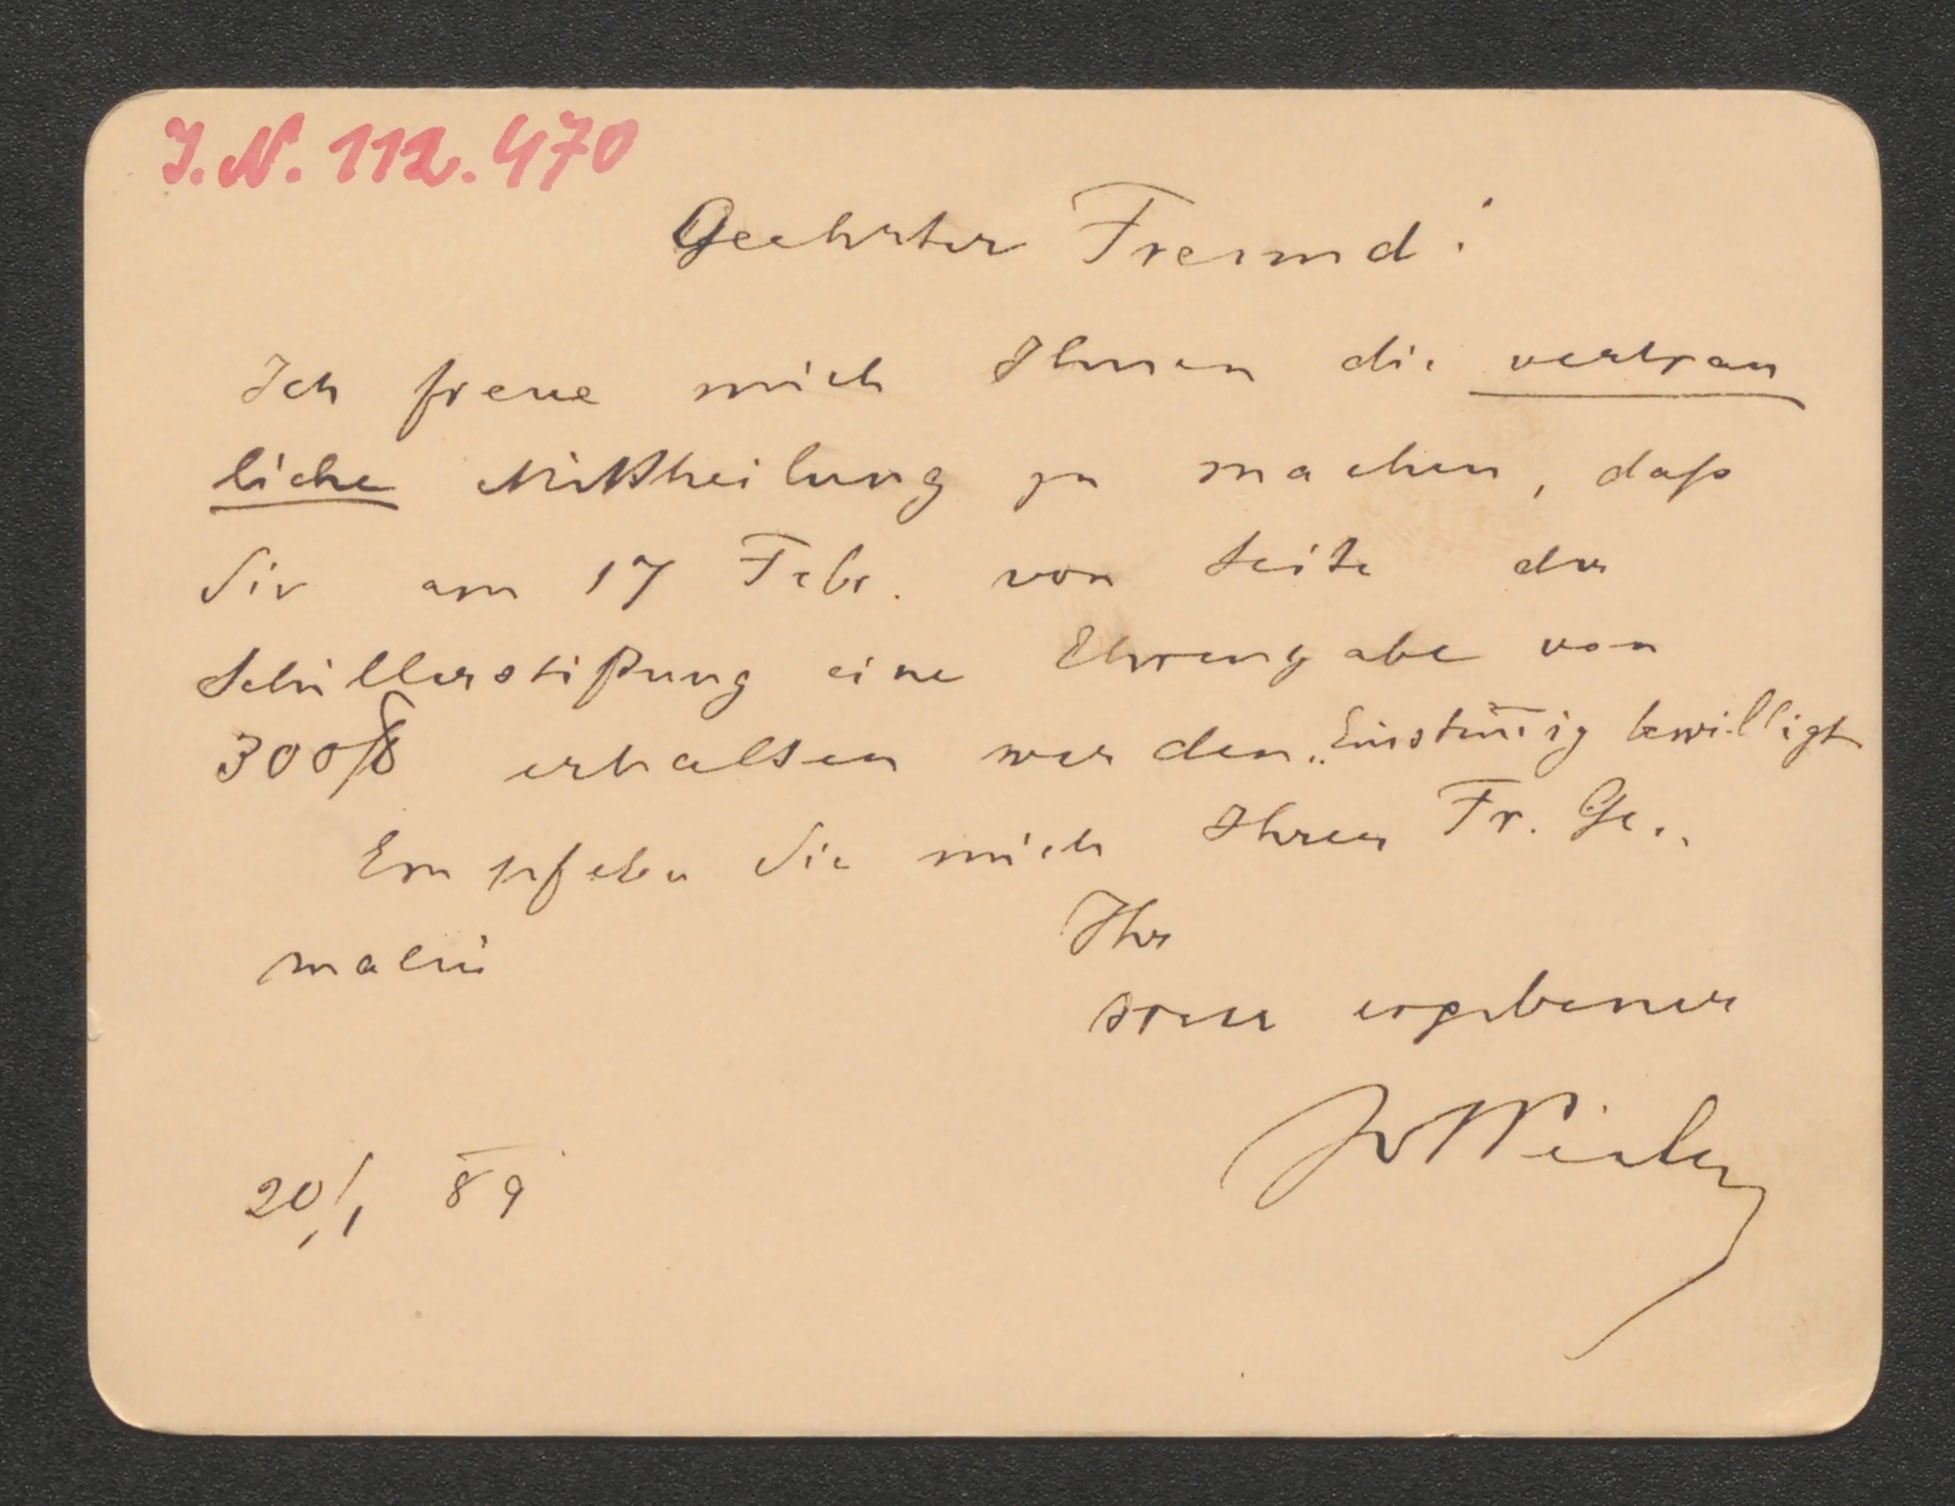 J.N. 112.470
Geehrter Freund!
Ich freue mich Ihnen die vertrau
liche Mittheilung zu machen, daß
Sie am 17 Febr. von Seite der
Schillerstiftung eine Ehrengabe von
300 fl erhalten werden. Einstim̅ig bewilligt
Empfelen Sie mich Ihrer Fr. Ge..
malin
Ihr
treu ergebener
20/1 89